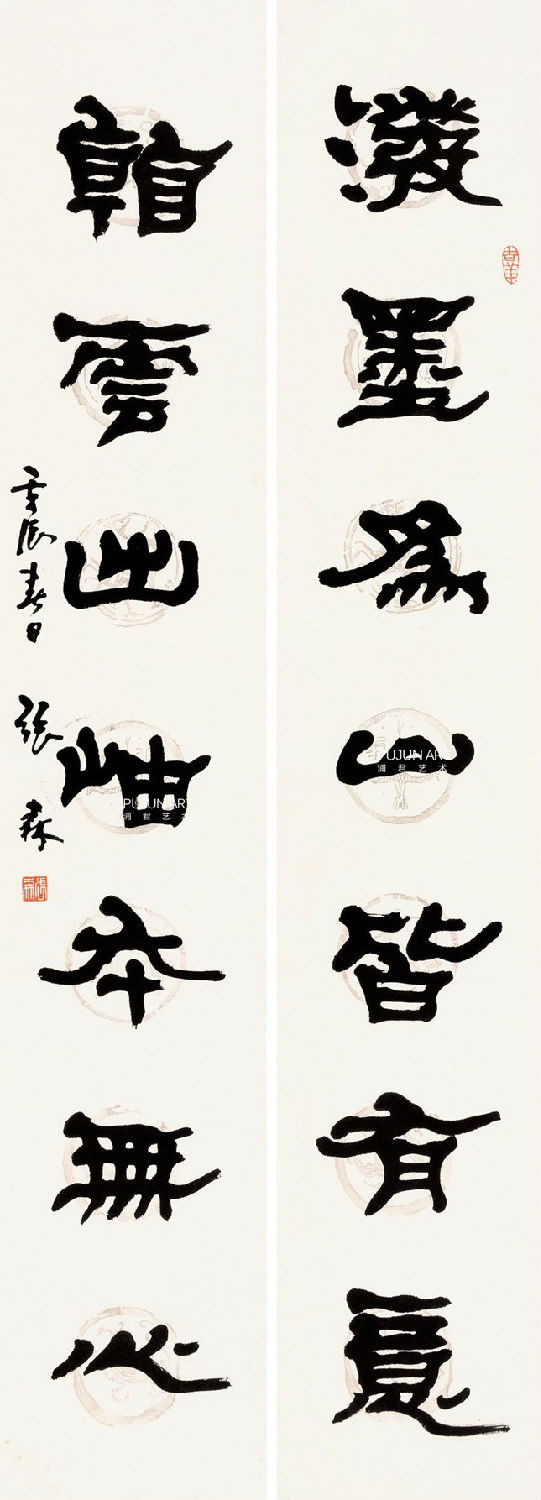 潑墨爲山皆有意
看雲出岫本無心
壬辰春日 張森
張森
PUJUN ART
浦君艺术
PUJUN ART
浦君艺术